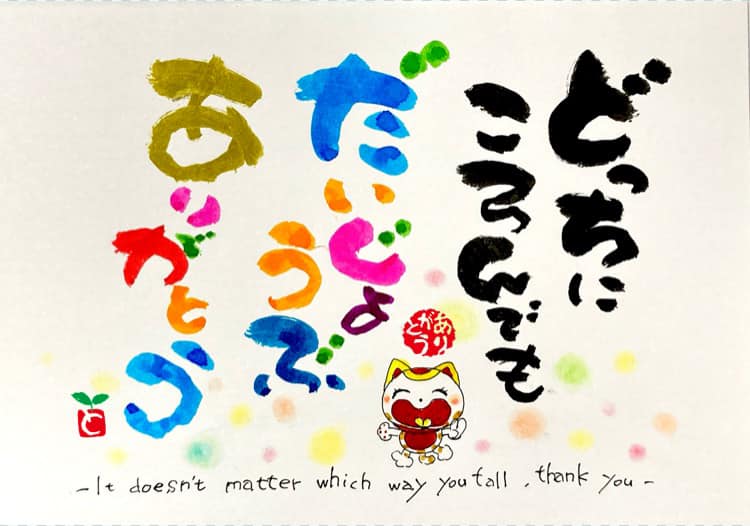 どっちに
ころんでも
だいじょ
うぶ
ありがとう
ありがとう
と
- It doesn't matter which way you fall , thank you -